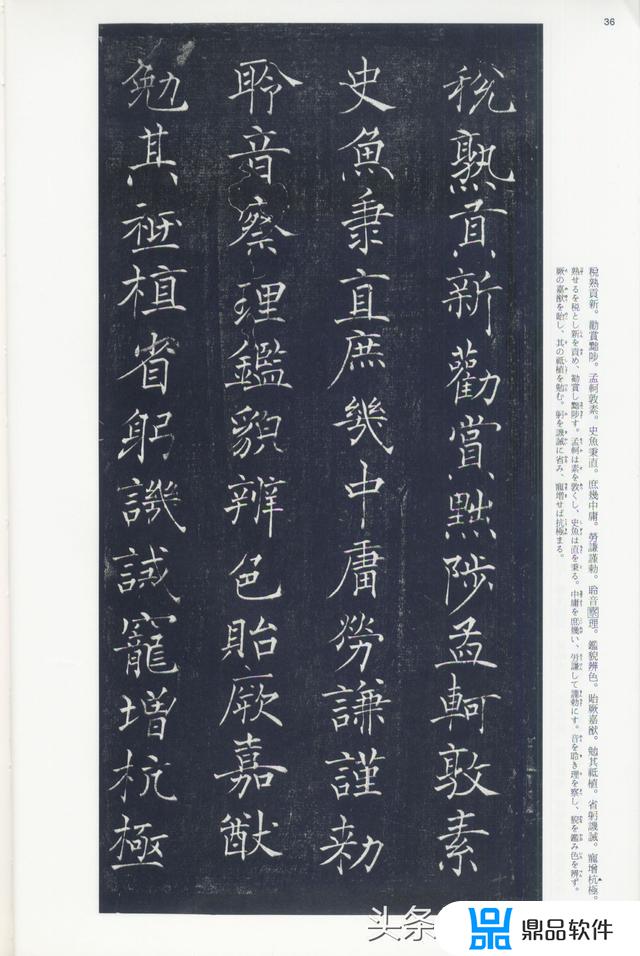 36
稅熟貢新勸賞黜陟孟軻敦素
史魚秉直庶幾中庸勞謙謹勑
聆音察理鑑貌辨色貽厥嘉猷
勉其祗植省躬譏誡寵增抗極
稅熟貢新。勸賞黜陟。孟軻敦素。史魚秉直。庶幾中庸。勞謙謹勑。聆音察理。鑑貌辨色。貽厥嘉猷。勉其祗植。省躬譏誡。寵增抗極。
熟せるを稅とし新を貢め、勸賞し黜陟す。孟軻は素を敦くし、史魚は直を秉る。中庸を庶幾い、勞謙して謹勑にす。音を聆き理を察し、貌を鑑み色を辨ず。
厥の嘉猷を貽し、其の祗植を勉む。躬を譏誡に省み、寵增せば抗極まる。
头条
鼎品软件